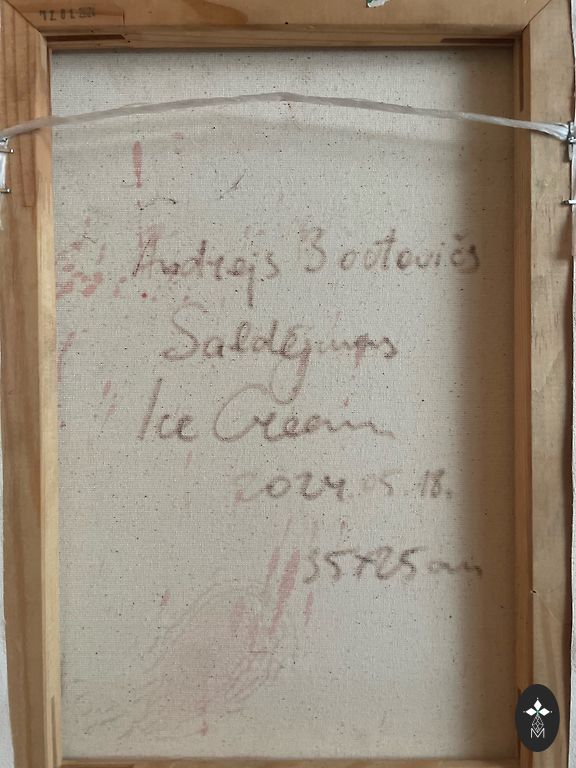 Andrejs Bovtovičs
Saldējums
Ice Cream
2024.05.18.
35x25cm